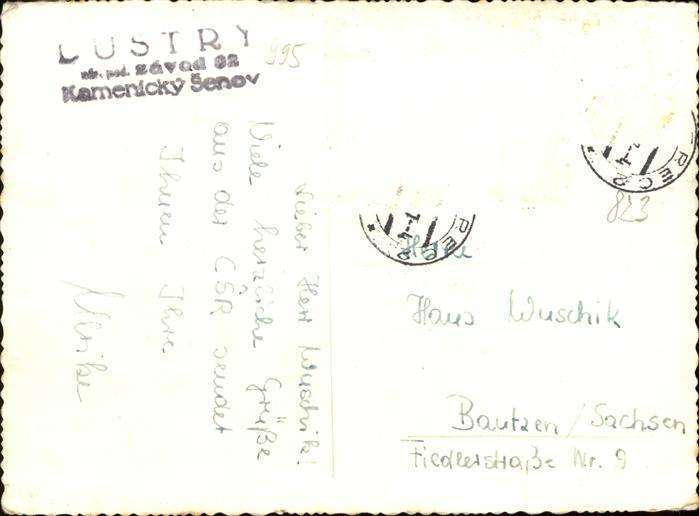 LUSTRY
nár. pod. závod 02
Kamenický Šenov
995
Lieber Herr Wuschik!
Viele herzliche Grüße
aus der ČSR sendet
Ihnen Ihre
Ulrike
823
Herrn
Hans Wuschik
Bautzen/Sachsen
Fiedlerstraße Nr. 9